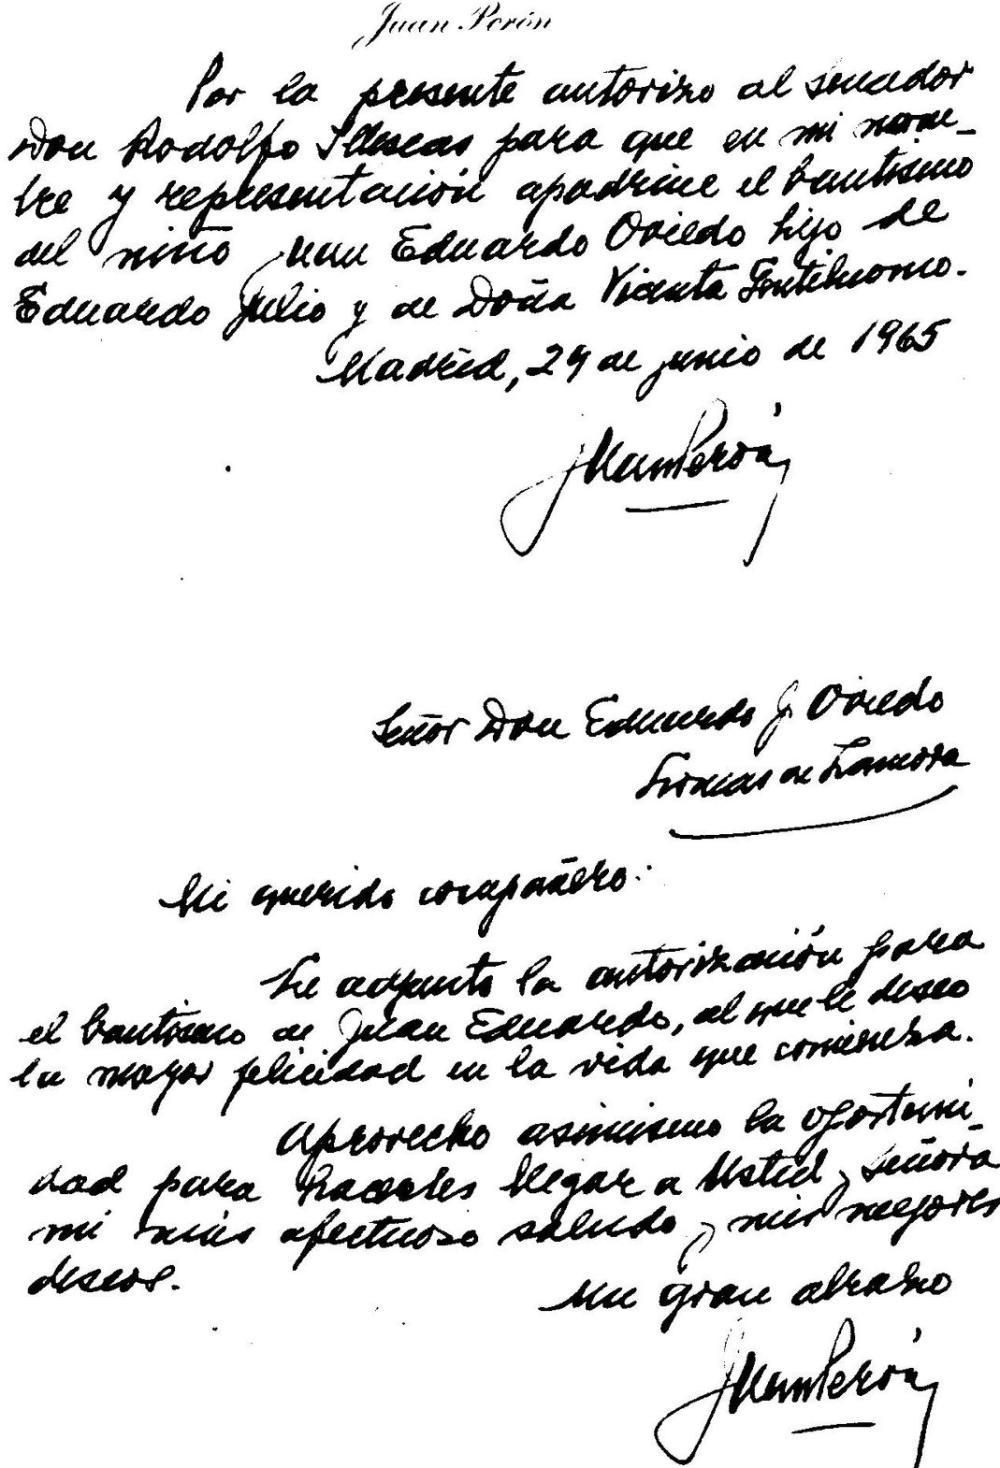 Juan Perón
Por la presente autorizo al senador
Don Rodolfo Illescas para que en mi nom-
bre y representación apadrine el bautismo
del niño Juan Eduardo Oviedo hijo de
Eduardo Julio y de Doña Vicenta
Madrid, 29 de junio de 1965
Juan Perón
Señor Don Eduardo J. Oviedo
Lomas de Zamora
Mi querido compañero:
Le adjunto la autorización para
el bautismo de Juan Eduardo, al que le deseo
la mayor felicidad en la vida que comienza.
Aprovecho asimismo la oportuni-
dad para hacerles llegar a Usted y señora
mi más afectuoso saludo y mis mejores
deseos.
Un gran abrazo
Juan Perón